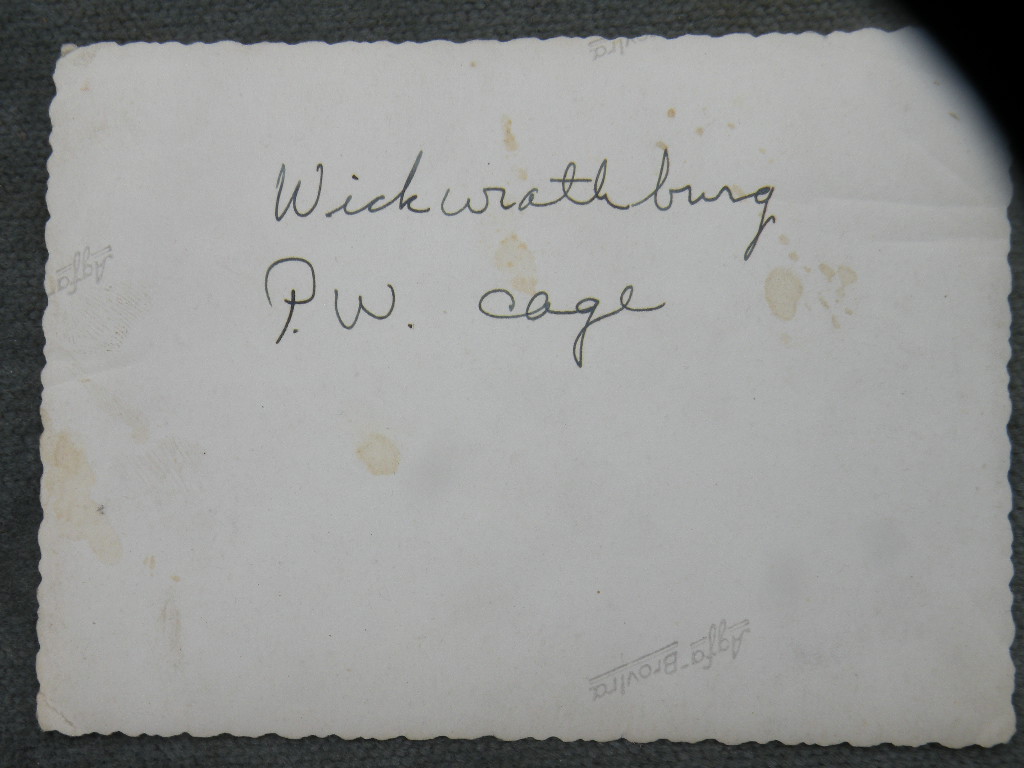 Brovira
Wickwrathburg
Agfa
P.W. cage
Agfa-Brovira